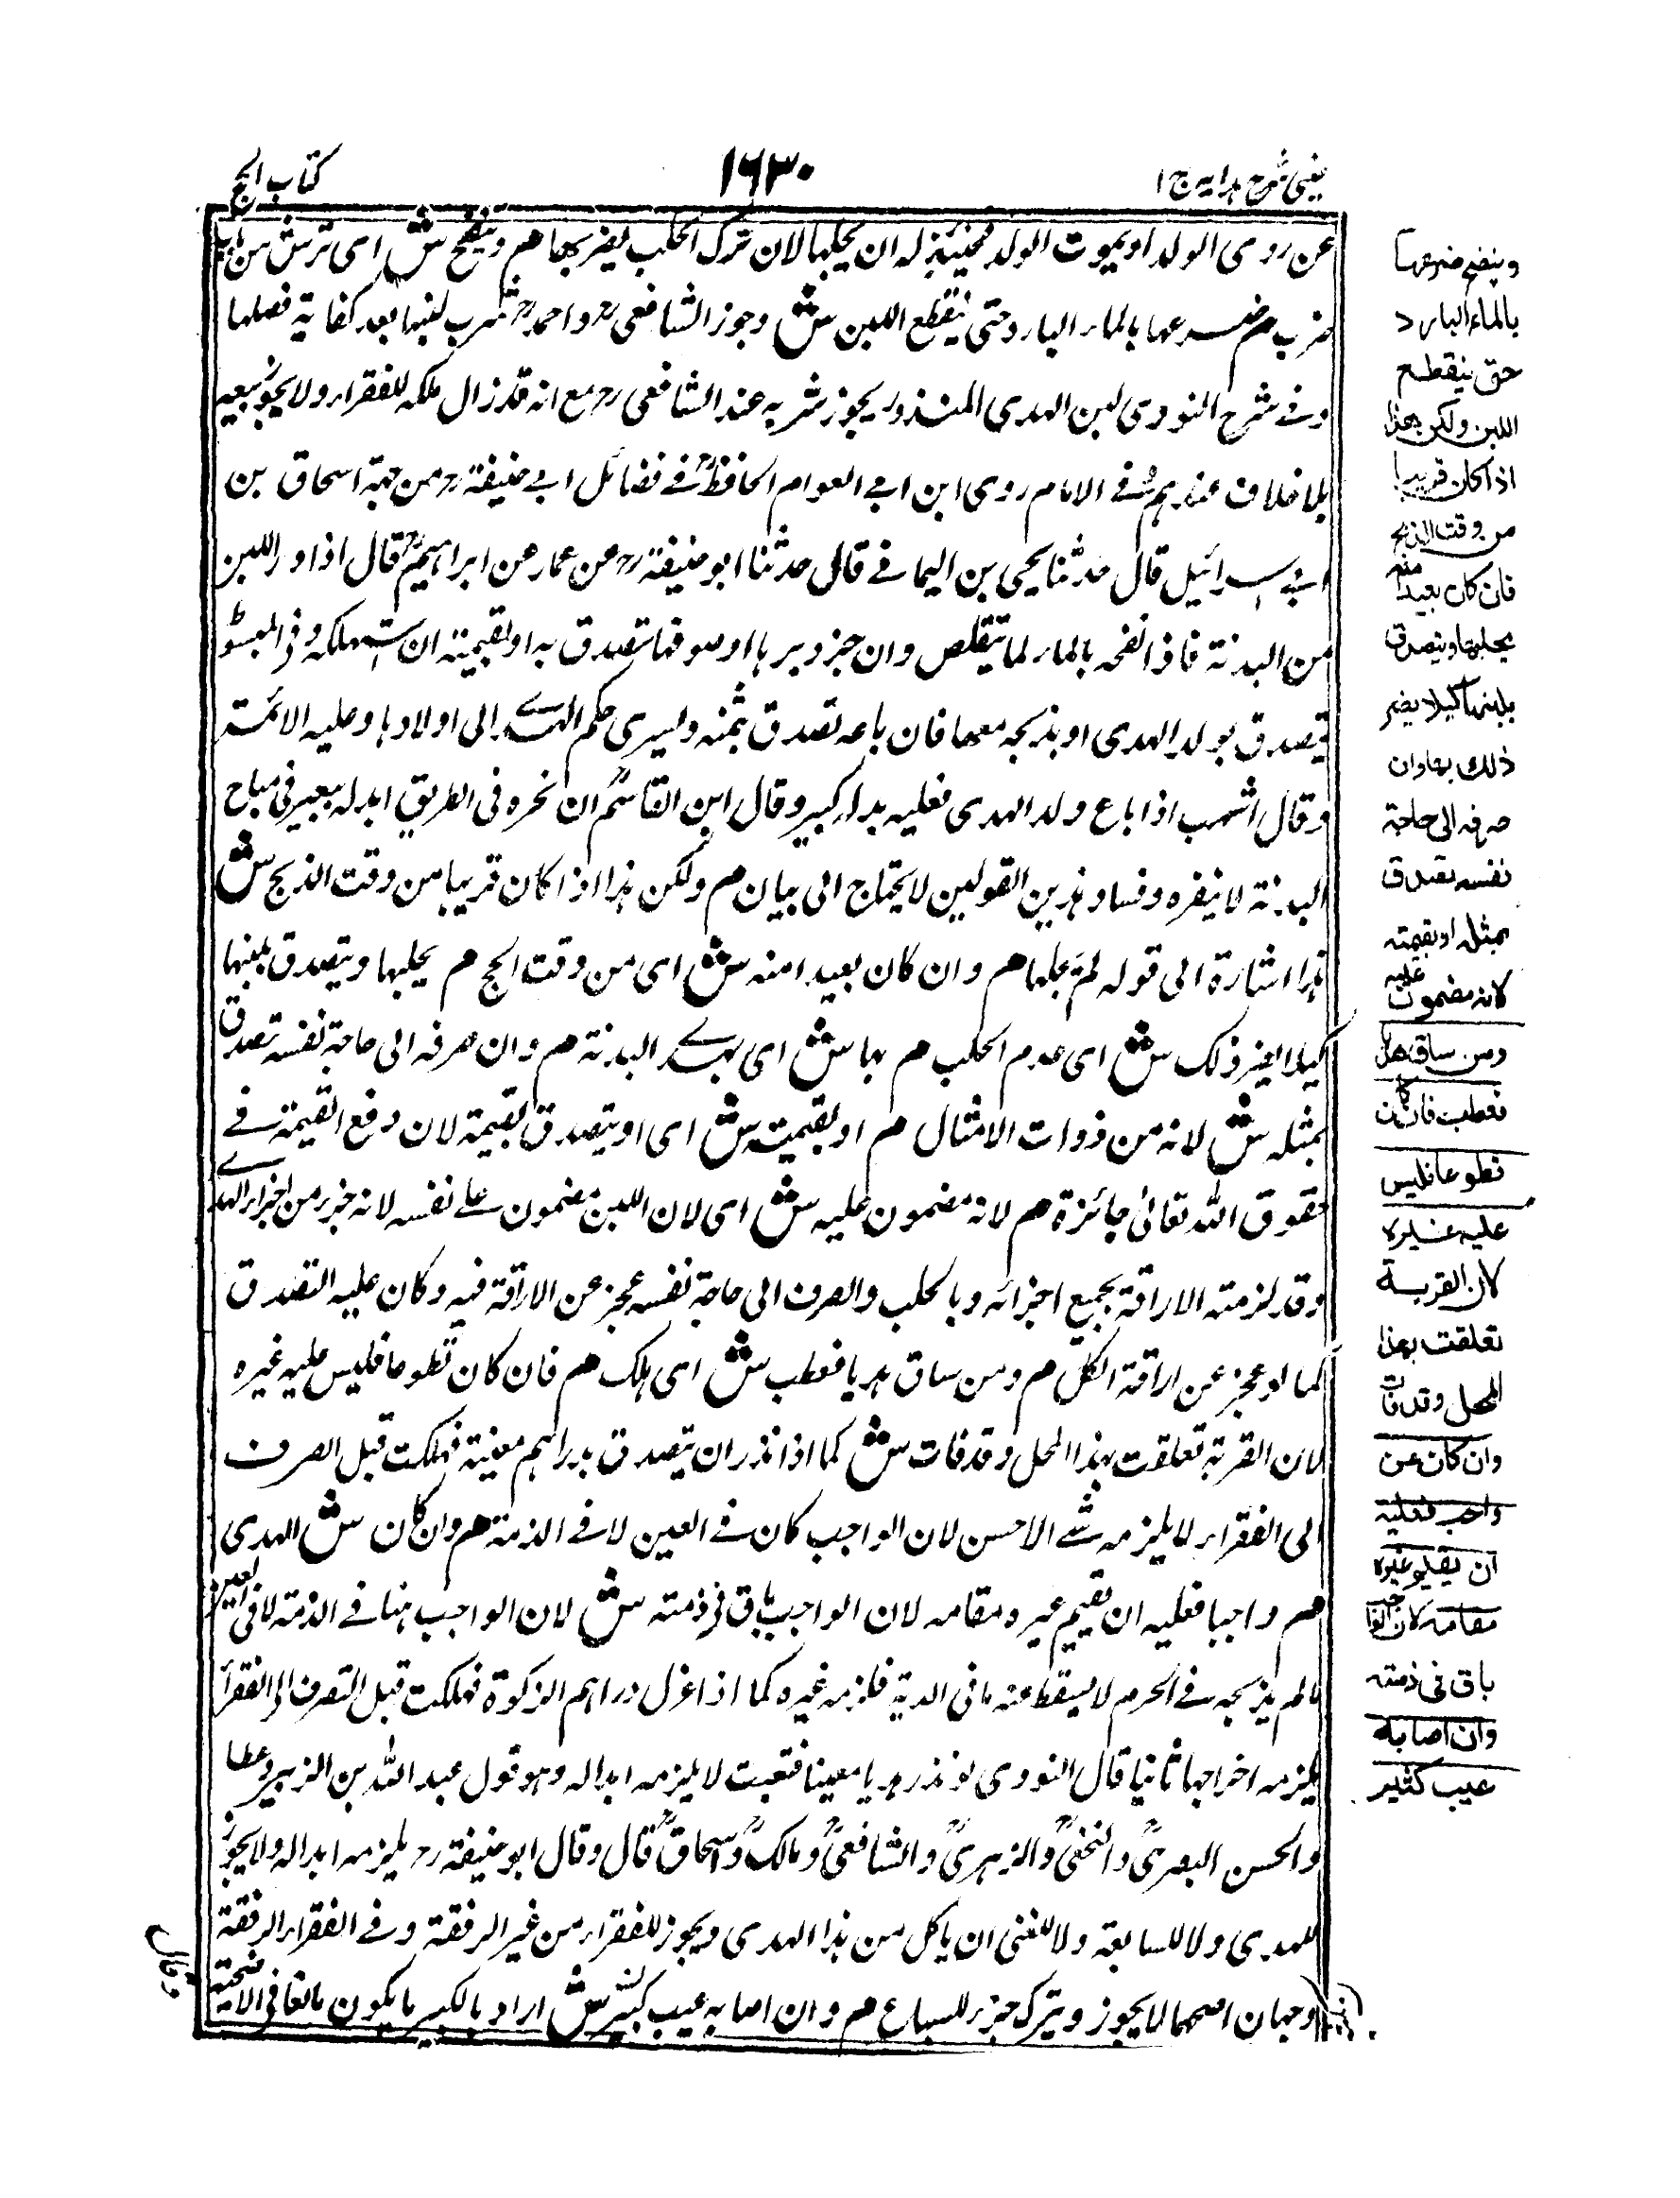 عینی شرح ہدایہ ج ۱
۱۶۳۰
کتاب الحج
عن روی الولد او یموت الولد فحینئذ له ان یحلبها لان ترک الحلب یضر بها هم وینضح ش ای ترش من باب
ضرب هم ضرعها بالماء البارد حتی ینقطع اللبن ش وجوز الشافعی رح واحمد رح شرب لبنها بعد کفایة فصلها
وفی شرح النووی لبن الهدی المنذور یجوز شربه عند الشافعی رح مع انه قد زال ملکه للفقراء ولا یجوز بیعه
بلا خلاف عندهم وفی الامام روی ابن ابی العوام الحافظ فی فضائل ابی حنیفة رح من جهة اسحاق بن
ابی اسرائیل قال حدثنا یحیی بن الیمانی قال حدثنا ابو حنیفة رح عن عمار عن ابراهیم قال اذا در اللبن
من البدنة فاذا نضحه بالماء لما تتقلص وان جز وبرها او صوفها تصدق به او بقیمته ان استهلکه وفی المبسوط
تصدق بولد الهدی او بذبحه معها فان باعه تصدق بثمنه ولیسری حکم الهدی الی اولادها وعلیه الائمة
وقال اشهب اذا باع ولد الهدی فعلیه بدله کبیر وقال ابن القاسم ان نحره فی الطریق ابدله ببعیر فی مباح
البدنة لا ینفره وفساد هذین القولین لا یحتاج الی بیان هم ولکن هذا اذا کان قریبا من وقت الذبح ش
هذا اشارة الی قوله لم یحلبها هم وان کان بعیدا منه ش ای من وقت الحج هم یحلبها ویتصدق بلبنها
کیلا یضر ذلک ش ای عدم الحلب هم بها ش ای بهذه البدنة هم وان صرفه الی حاجة نفسه تصدق
بمثله ش لانه من ذوات الامثال هم او بقیمته ش ای او یتصدق بقیمة لان دفع القیمة فی
حقوق الله تعالیٰ جائزة هم لانه مضمون علیه ش ای لان اللبن مضمون علی نفسه لانه جزء من اجزاء الهدی
وقد لزمته الاراقة بجمیع اجزائه وبالحلب والصرف الی حاجة نفسه عجز عن الاراقة فیه وکان علیه التصدق
کما لو عجز عن اراقة الکل هم ومن ساق هدیا فعطب ش ای هلک هم فان کان تطوعا فلیس علیه غیره
لان القربة تعلقت بهذا المحل وقد فات ش کما اذا نذر ان یتصدق بدراهم معینة فهلکت قبل الصرف
الی الفقراء لا یلزمه شیء الاحسن لان الواجب کان فی العین لا فی الذمة هم وان کان ش الهدی
هم واجبا فعلیه ان یقیم غیره مقامه لان الواجب باق فی ذمته ش لان الواجب هنا فی الذمة لا فی العین
مالم یذبحه فی الحرم لا یسقط عنه ما فی الدیة فلزمه غیره کما اذا عزل دراهم الزکوة فهلکت قبل التصرف الی الفقراء
یلزمه اخراجها ثانیا قال النووی لو نذر هدیا معینا فتعبت لا یلزمه ابداله وهو قول عبد الله بن الزبیر وعطا
والحسن البصری والنخعی والزهری والشافعی ومالک واسحاق قال وقال ابو حنیفة رح یلزمه ابداله ولا یجوز
للهدی ولا للسابقة ولا للغنی ان یاکل من هذا الهدی ویجوز للفقراء من غیر الرفقة وفی الفقراء الرفقة
وجهان اصحهما لا یجوز ویترک جزر للسباع هم وان اصابه عیب کثیر ش اراد بالکبیر ما یکون مانعا فی الاضحیة
وینضح ضرعها
بالماء البارد
حتی ینقطع
اللبن ولکن هذا
اذا کان قریبا
من وقت الذبح
فان کان بعیدا منه
یحلبها ویتصدق
بلبنها کیلا یضر
ذلك بها وان
صرفه الی حاجة
نفسه تصدق
بمثله او بقیمته
لانه مضمون علیه
ومن ساق هدیا
فعطب فان کان
تطوعا فلیس
علیه غیره
لان القربة
تعلقت بهذا
المحل وقد فات
وان کان عن
واجب فعلیه
ان یقیم غیره
مقامه لان الواجب
باق فی ذمته
وان اصابه
عیب کثیر